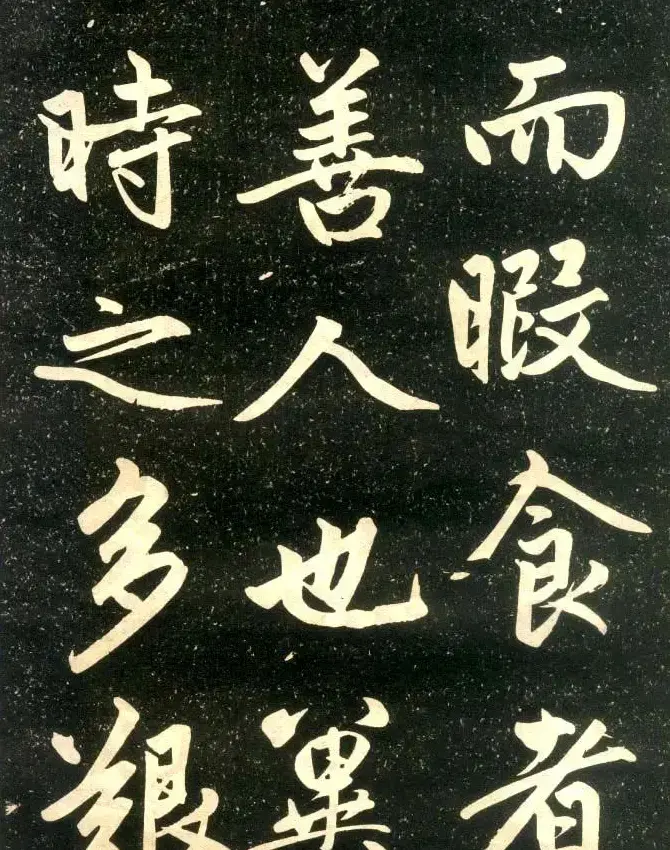 而暇食者
善人也冀
時之多艱